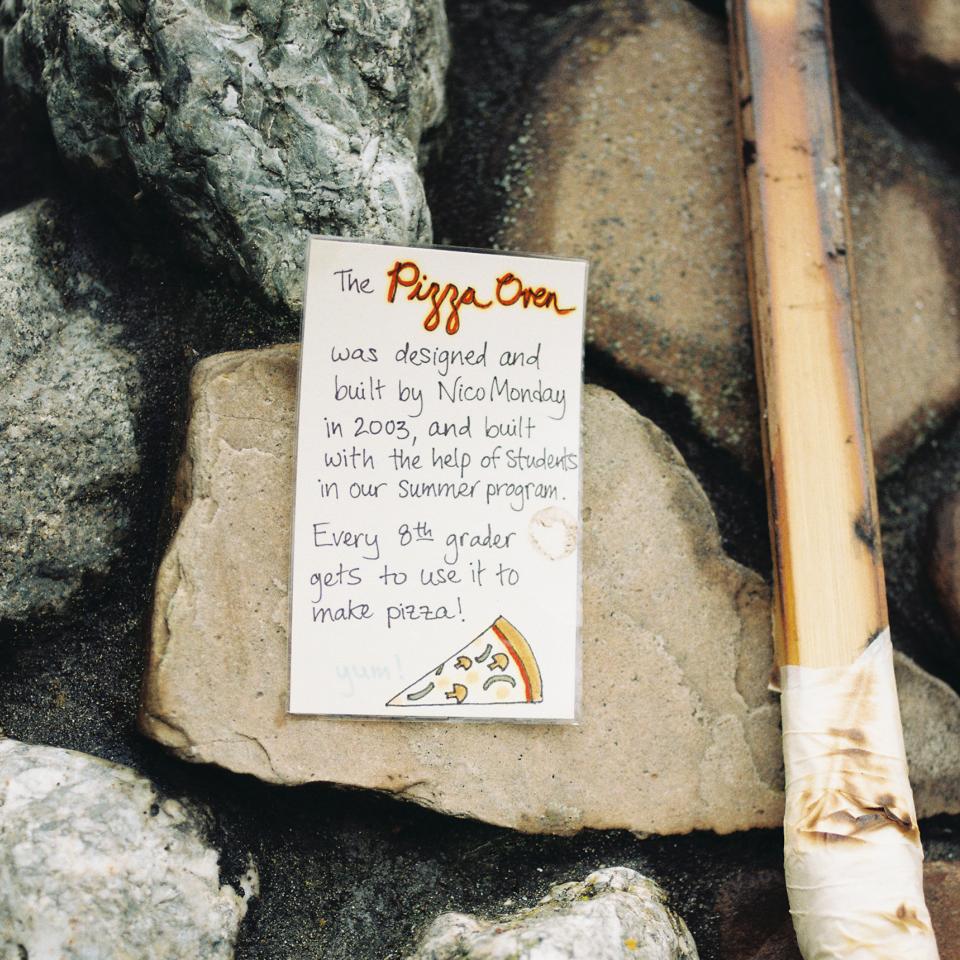 The Pizza Oven
was designed and
built by Nico Monday
in 2003, and built
with the help of students
in our summer program.
Every 8th grader
gets to use it to
make pizza!
yum!